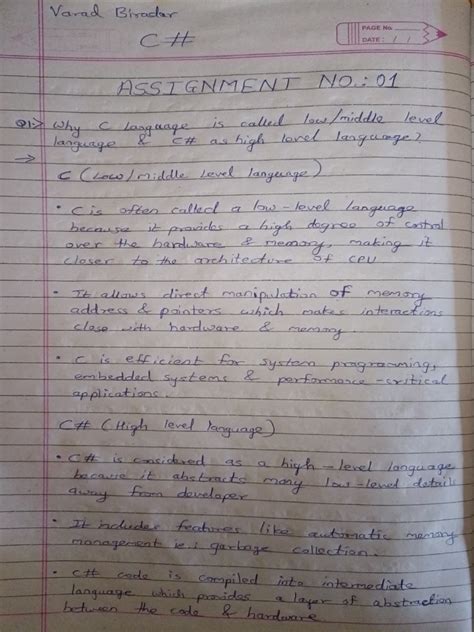 Varad Biradar
C#
PAGE No.
DATE: / /
ASSIGNMENT NO.: 01
Q1:> Why C language is called low/middle level
language & C# as high level language?
→
C (Low/middle level language)
• C is often called a low-level language
because it provides a high degree of control
over the hardware & memory, making it
closer to the architecture of CPU
• It allows direct manipulation of memory
address & pointers which makes interactions
close with hardware & memory.
• C is efficient for system programming,
embedded systems & performance-critical
applications.
C# (High level language)
• C# is considered as a high-level language
because it abstracts many low-level details
away from developer
• It includes features like automatic memory
management i.e; garbage collection.
• C# code is compiled into intermediate
language which provides a layer of abstraction
between the code & hardware